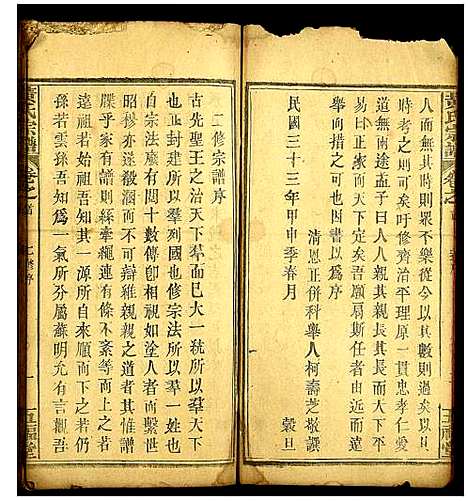 人而無其時則眾不樂從今以其數則過矣以其
時考之則可矣吁修齊治平理原一貫忠孝仁愛
道無兩途孟子曰人人親其親長其長而天下平
易曰正家而天下定吾願扇斯任者由近而遠
舉而措之是以為序
清恩正併科舉人柯壽芝敬譔
民國三十三年甲申季春月 穀旦
黃氏宗譜
卷之首
五福堂
二修宗譜序
古先聖王之治天下羣而已大一統所以羣天下
也正封建所以羣列國也修宗法所以羣一姓也
自宗法廢有閱十數傳卽相視如塗人者而繫世
昭穆亦遂殺溷而不可辯雖親親之道者其惟譜
牒乎家有譜則絲牽繩連有條不紊始於一人之
遠祖若始祖吾知其一源所自來順而下之若仍
孫若雲孫吾知為一氣所分屬蘇明允有言觀吾
黃氏宗譜
卷之首
二修序
一
五福堂